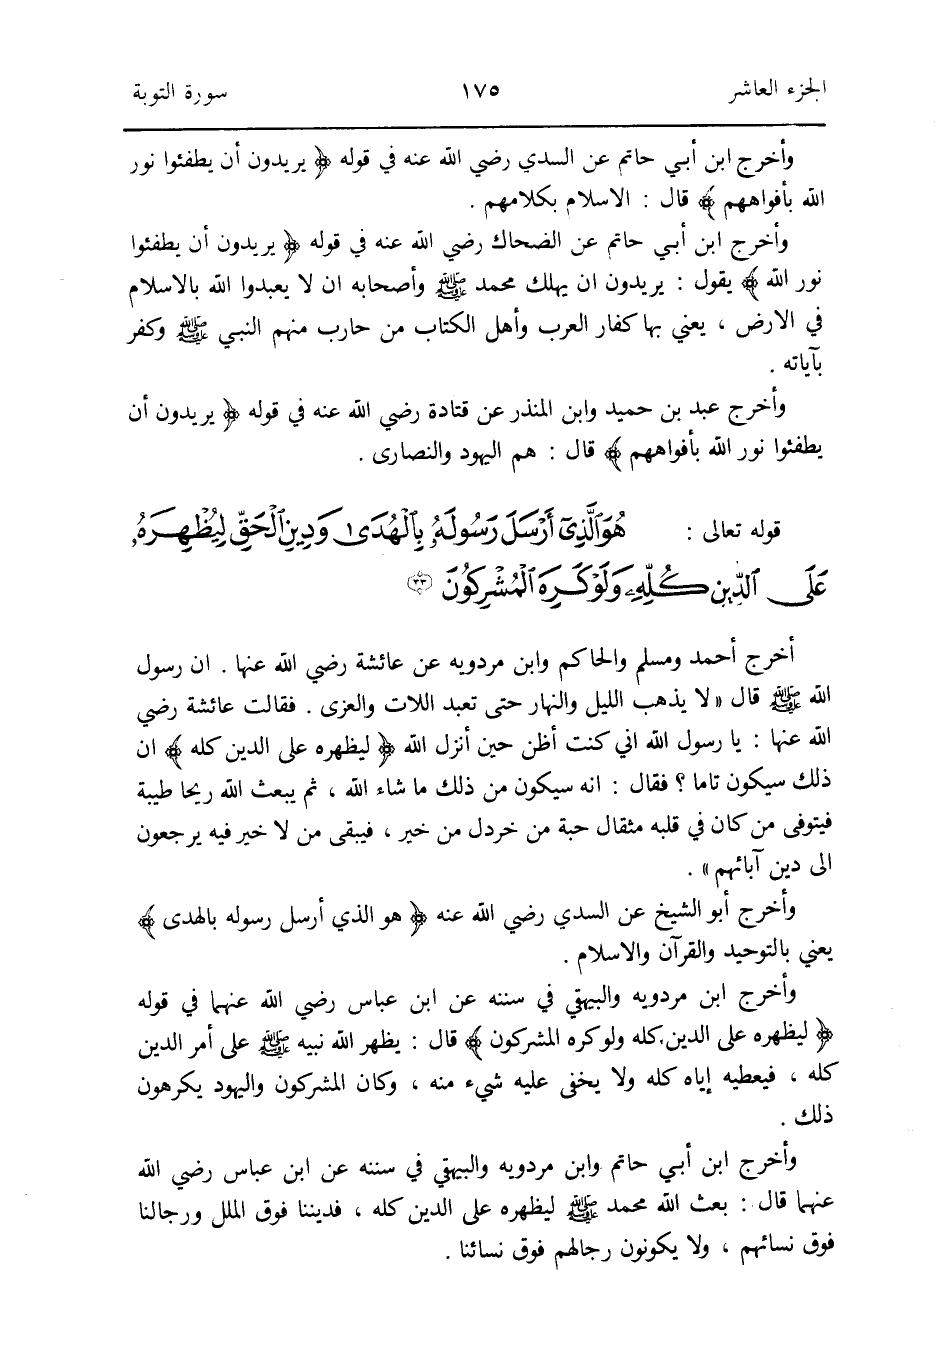 الجزء العاشر ١٧٥ سورة التوبة
وأخرج ابن أبي حاتم عن السدي رضي الله عنه في قوله ﴿ يريدون أن يطفئوا نور
الله بأفواههم ﴾ قال : الاسلام بكلامهم .
وأخرج ابن أبي حاتم عن الضحاك رضي الله عنه في قوله ﴿ يريدون أن يطفئوا
نور الله ﴾ يقول : يريدون ان يهلك محمد ﷺ وأصحابه ان لا يعبدوا الله بالاسلام
في الارض ، يعني بها كفار العرب وأهل الكتاب من حارب منهم النبي ﷺ وكفر
بآياته .
وأخرج عبد بن حميد وابن المنذر عن قتادة رضي الله عنه في قوله ﴿ يريدون أن
يطفئوا نور الله بأفواههم ﴾ قال : هم اليهود والنصارى .
قوله تعالى : هُوَ ٱلَّذِىٓ أَرْسَلَ رَسُولَهُۥ بِٱلْهُدَىٰ وَدِينِ ٱلْحَقِّ لِيُظْهِرَهُۥ
عَلَى ٱلدِّينِ كُلِّهِۦ وَلَوْ كَرِهَ ٱلْمُشْرِكُونَ ٣٣
أخرج أحمد ومسلم والحاكم وابن مردويه عن عائشة رضي الله عنها . ان رسول
الله ﷺ قال « لا يذهب الليل والنهار حتى تعبد اللات والعزى . فقالت عائشة رضي
الله عنها : يا رسول الله اني كنت أظن حين أنزل الله ﴿ ليظهره على الدين كله ﴾ ان
ذلك سيكون تاما ؟ فقال : انه سيكون من ذلك ما شاء الله ، ثم يبعث الله ريحا طيبة
فيتوفى من كان في قلبه مثقال حبة من خردل من خير ، فيبقى من لا خير فيه يرجعون
الى دين آبائهم » .
وأخرج أبو الشيخ عن السدي رضي الله عنه ﴿ هو الذي أرسل رسوله بالهدى ﴾
يعني بالتوحيد والقرآن والاسلام .
وأخرج ابن مردويه والبيهقي في سننه عن ابن عباس رضي الله عنهما في قوله
﴿ ليظهره على الدين كله ولو كره المشركون ﴾ قال : يظهر الله نبيه ﷺ على أمر الدين
كله ، فيعطيه إياه كله ولا يخفى عليه شيء منه ، وكان المشركون واليهود يكرهون
ذلك .
وأخرج ابن أبي حاتم وابن مردويه والبيهقي في سننه عن ابن عباس رضي الله
عنهما قال : بعث الله محمد ﷺ ليظهره على الدين كله ، فديننا فوق الملل ورجالنا
فوق نسائهم ، ولا يكونون رجالهم فوق نسائنا .